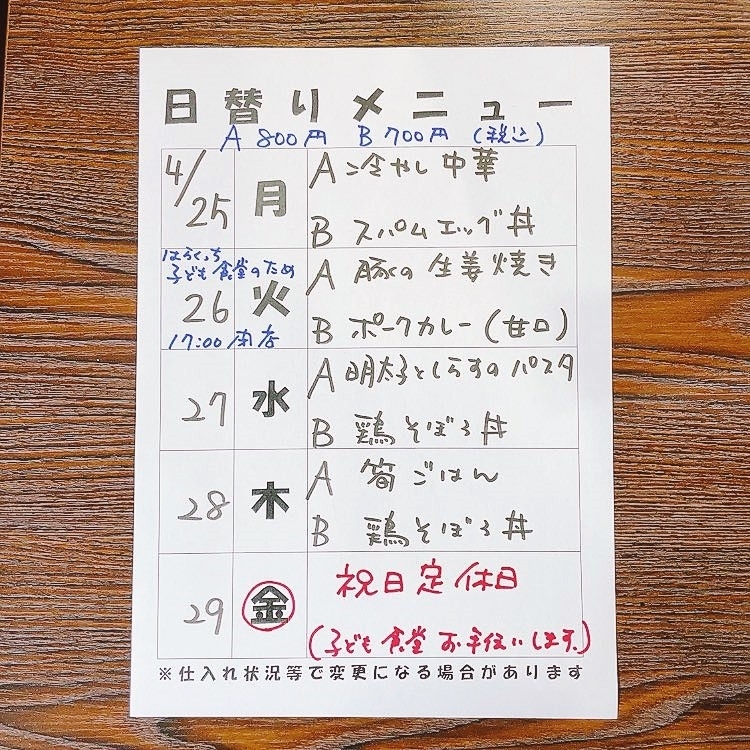 日替りメニュー
A 800円 B 700円 (税込)
4/25 月 A 冷やし中華
B スパムエッグ丼
はらくっち
子ども食堂のため
26 火 A 豚の生姜焼き
17:00 閉店 B ポークカレー(甘口)
27 水 A 明太子としらすのパスタ
B 鶏そぼろ丼
28 木 A 筍ごはん
B 鶏そぼろ丼
29 金 祝日定休日
(子ども食堂お手伝いします。)
※仕入れ状況等で変更になる場合があります